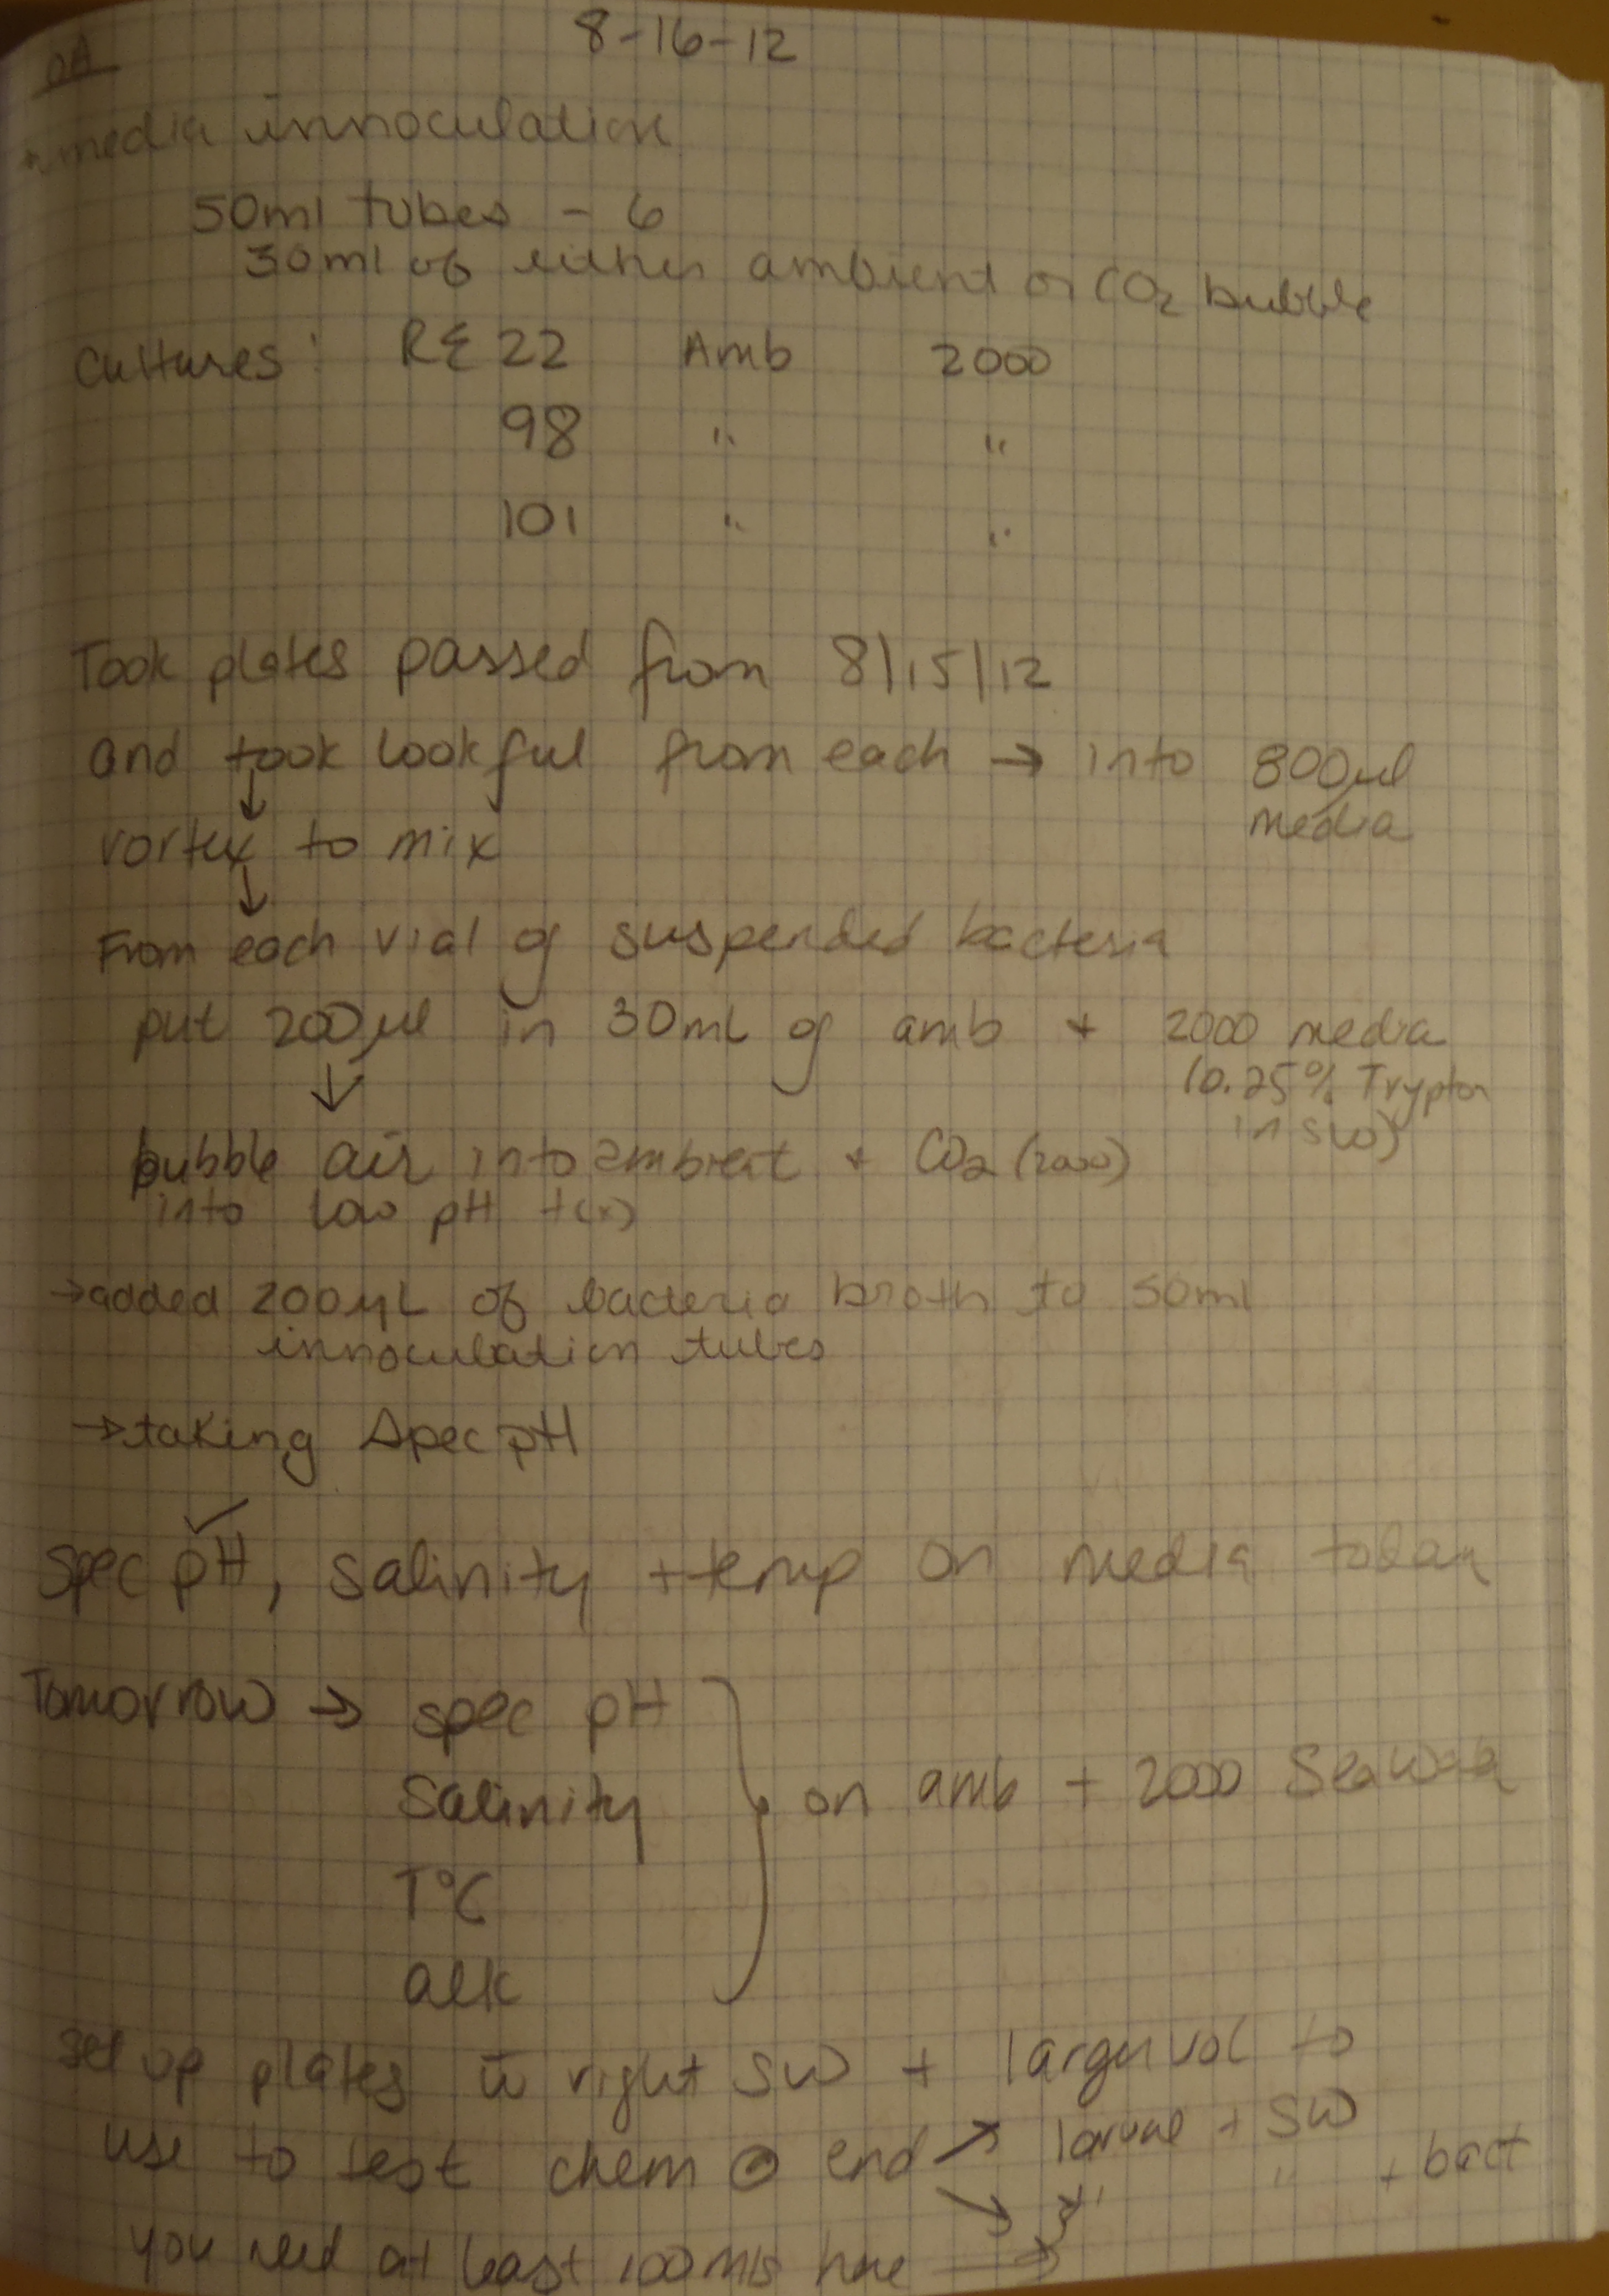 OA
8-16-12
* media innoculation
50ml tubes - 6
30ml of either ambient or CO2 bubble
Cultures: RE 22 Amb 2000
98 " "
101 " "
Took plates passed from 8/15/12
and took lookful from each → into 800µl
media
↓
vortex to mix
↓
From each vial of suspended bacteria
put 200µl in 30mL of amb + 2000 media
(0.25% Trypton
in SW)
↓
bubble air into ambient + CO2 (2000)
into low pH t(x)
→ added 200µL of bacteria broth to 50ml
innoculation tubes
→ taking spec pH
✓
spec pH, salinity + temp on media today
Tomorrow → spec pH
Salinity
on amb + 2000 Seawater
T°C
alk
set up plates w right SW + larger vol to
use to test chem @ end ↗ larvae + SW
↘ " " + bact
you need at least 100mls here →